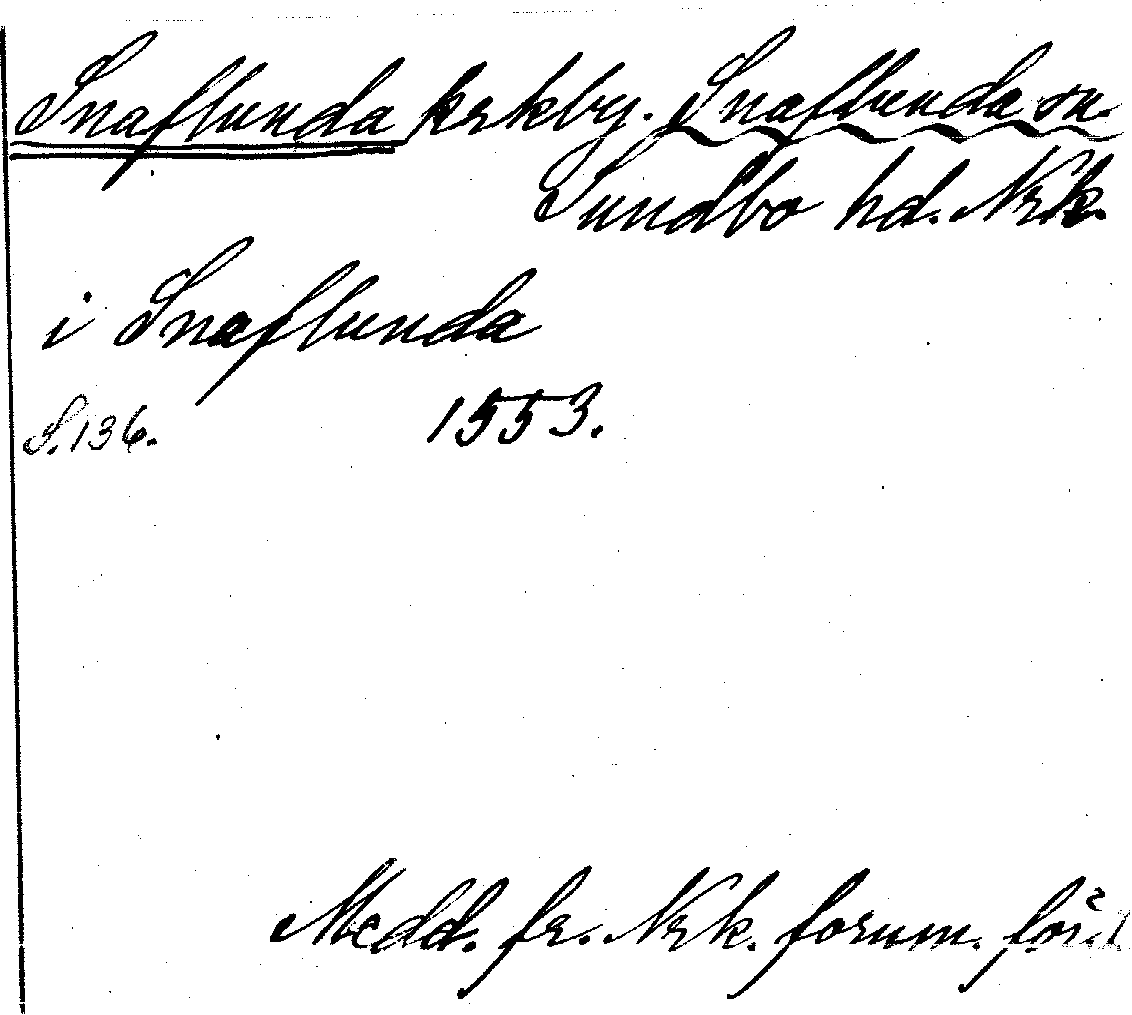 Snaflunda krkby. Snaflunda sn.
Sundbo hd. Nrk.
i Snaflunda
S. 136. 1553.
Medd. fr. Nrk. fornm. för. 1